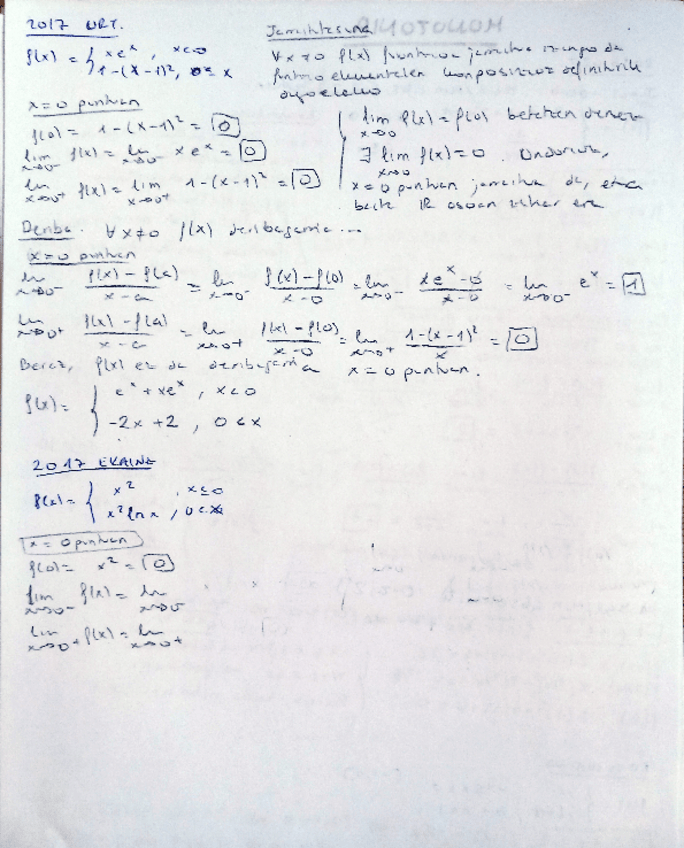 2017 URT.
f(x) = { xeˣ , x<0
1-(x-1)², 0≤x
Jarraitutasuna
∀x≠0 f(x) funtzioa jarraitua izango da
funtzio elementalen konposizioz definiturik
dagoelako
x=0 puntuan
f(0) = 1-(x-1)² = 0
lim x→0⁻ f(x) = lim x→0⁻ xeˣ = 0
lim x→0⁺ f(x) = lim x→0⁺ 1-(x-1)² = 0
lim x→0 f(x) = f(0) betetzen denez
∃ lim x→0 f(x) = 0. Ondorioz,
x=0 puntuan jarraitua da, eta
baita ℝ osoan zehar ere
Deriba. ∀x≠0 f(x) deribagarria ...
x=0 puntuan
lim x→0⁻ (f(x)-f(a))/(x-a) = lim x→0⁻ (f(x)-f(0))/(x-0) = lim x→0⁻ (xeˣ-0)/(x-0) = lim x→0⁻ eˣ = 1
lim x→0⁺ (f(x)-f(a))/(x-a) = lim x→0⁺ (f(x)-f(0))/(x-0) = lim x→0⁺ (1-(x-1)²)/x = 0
Beraz, f(x) ez da deribagarria x=0 puntuan.
f(x) = { eˣ + xeˣ , x<0
-2x+2 , 0<x
2017 EKAINA
f(x) = { x² , x≤0
x² ln x , 0<x
x=0 puntuan
f(0) = x² = 0
lim x→0⁻ f(x) = lim x→0⁻
lim x→0⁺ f(x) = lim x→0⁺